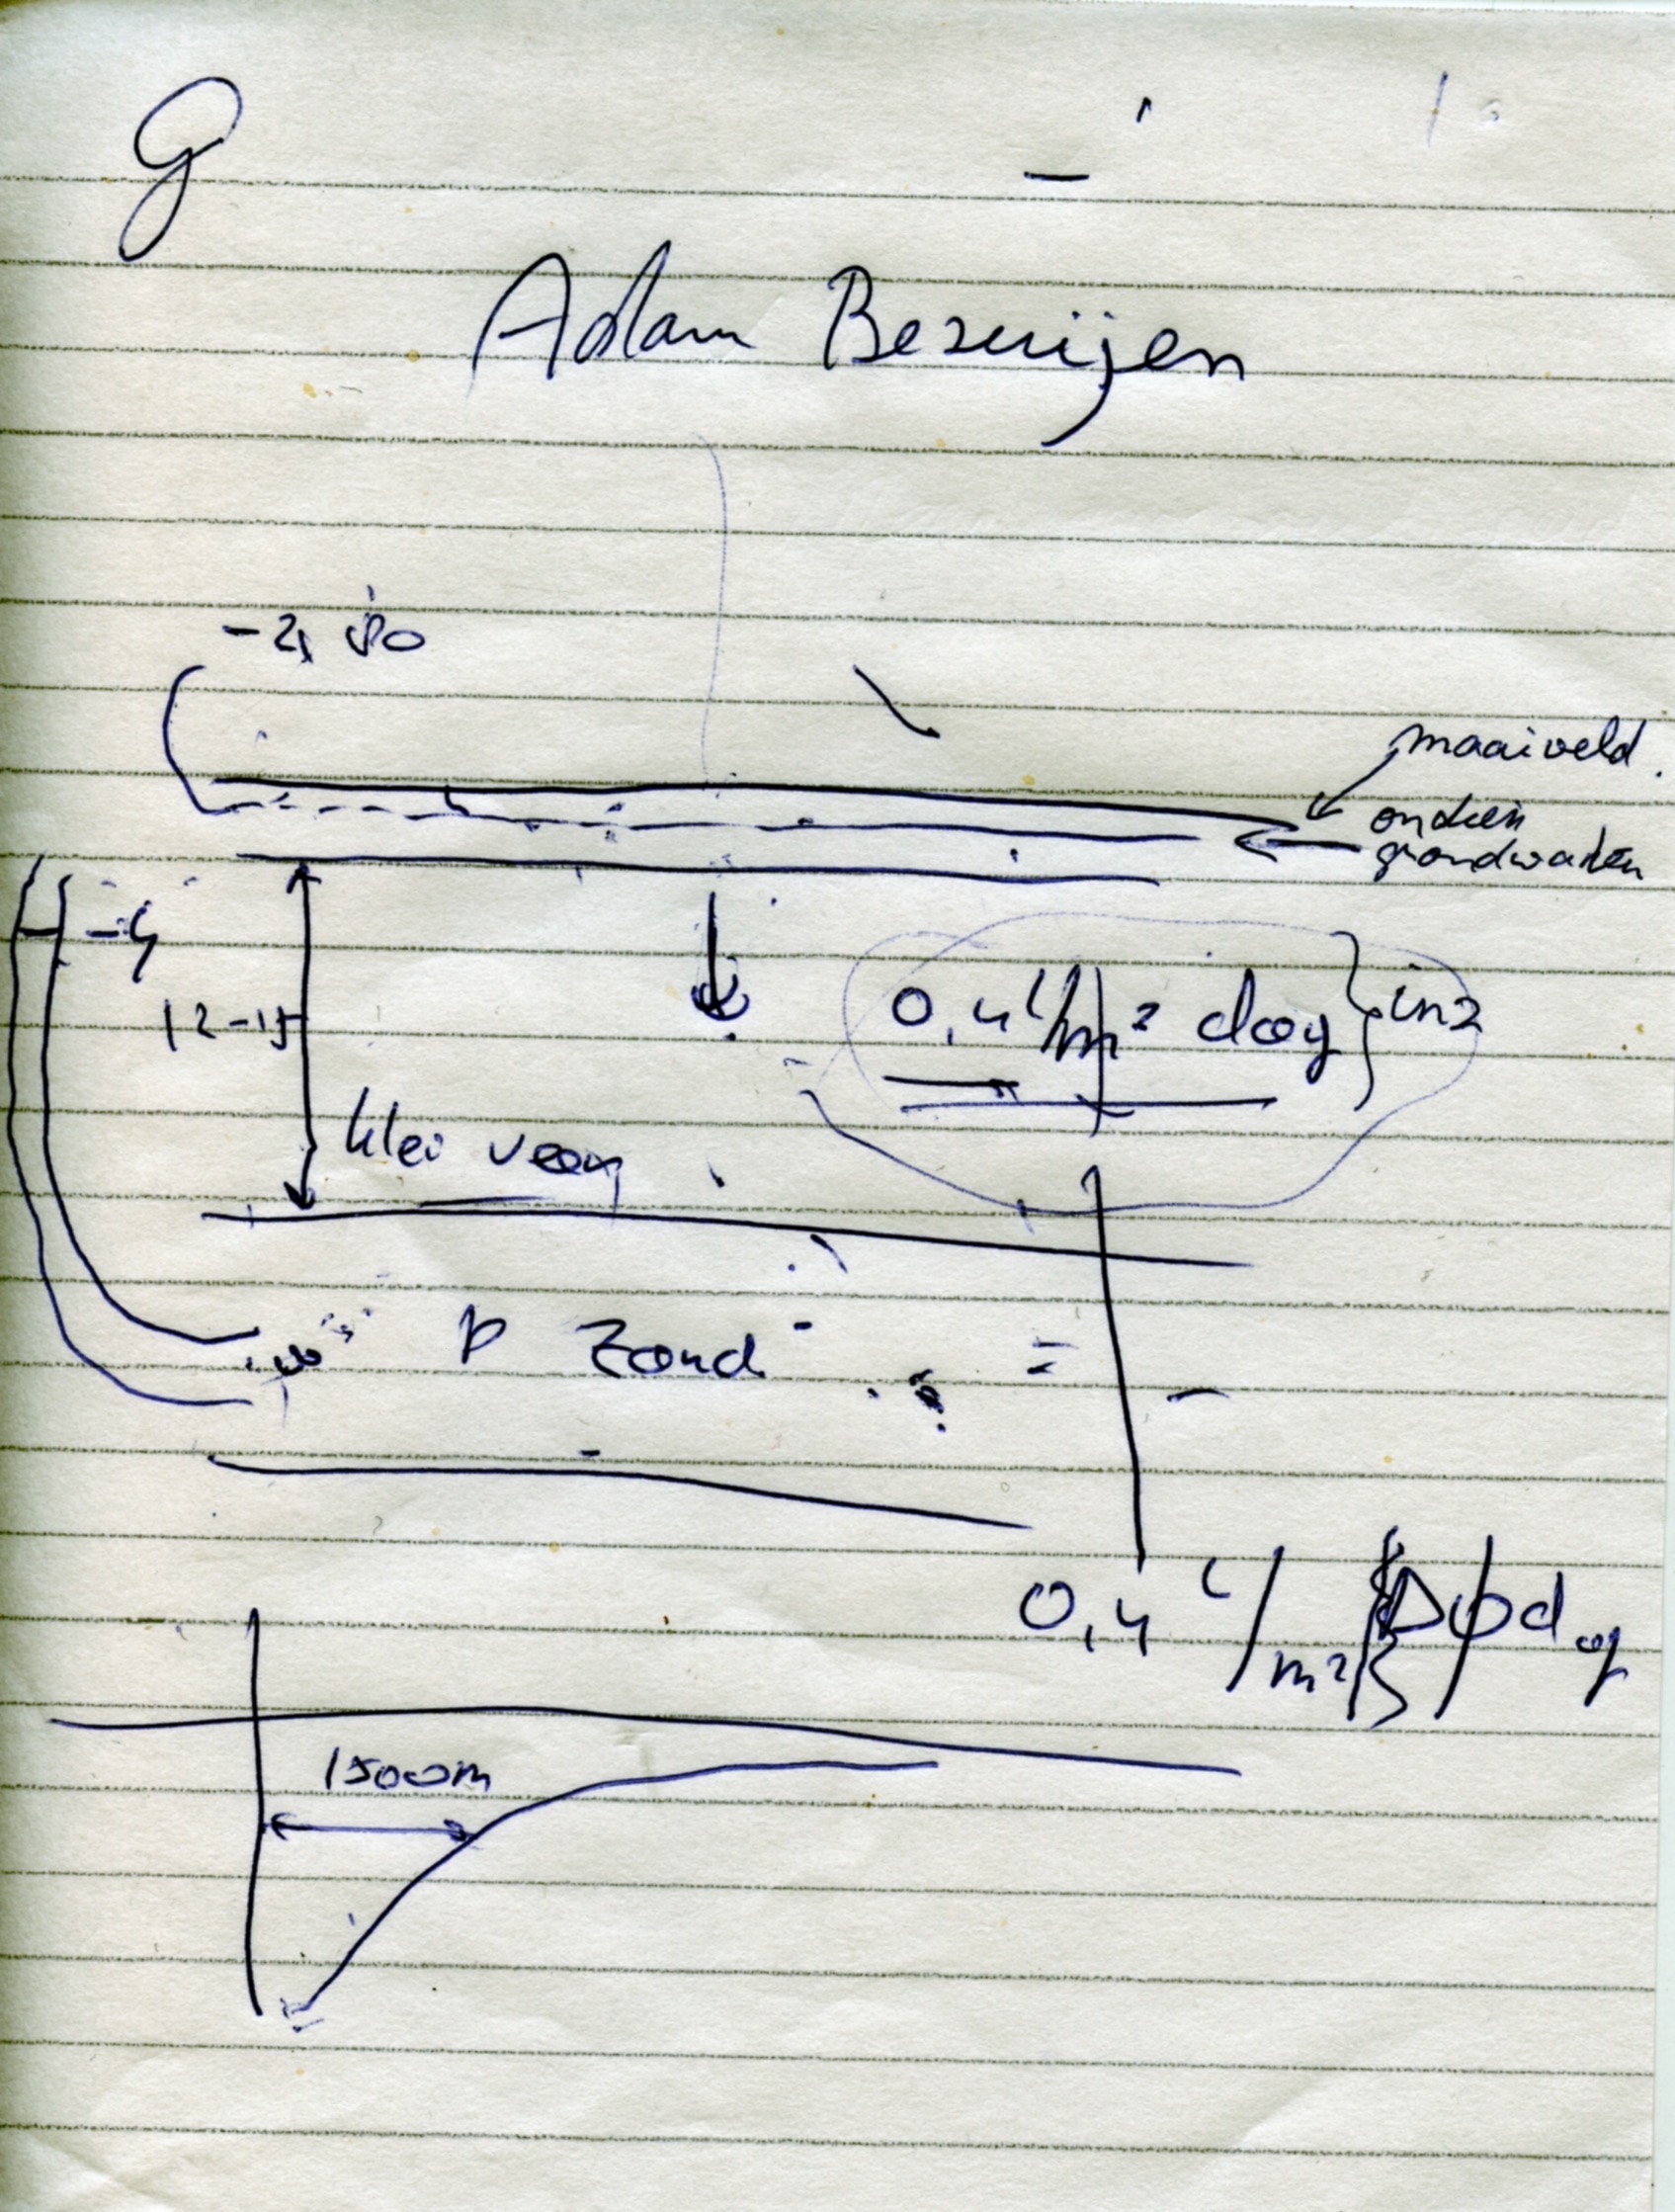 G
Adam Bezuijen
-2,80
maaiveld.
ondien
grondwater
12-15
0,4 l/m² dag
klei veen
p zand
0,4 l/m² Δφ dag
1500m